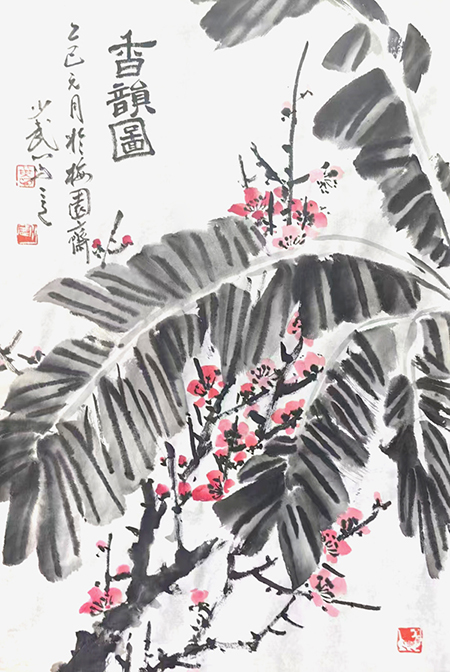 香韻圖
乙巳元月於梅園齋
少武寫之